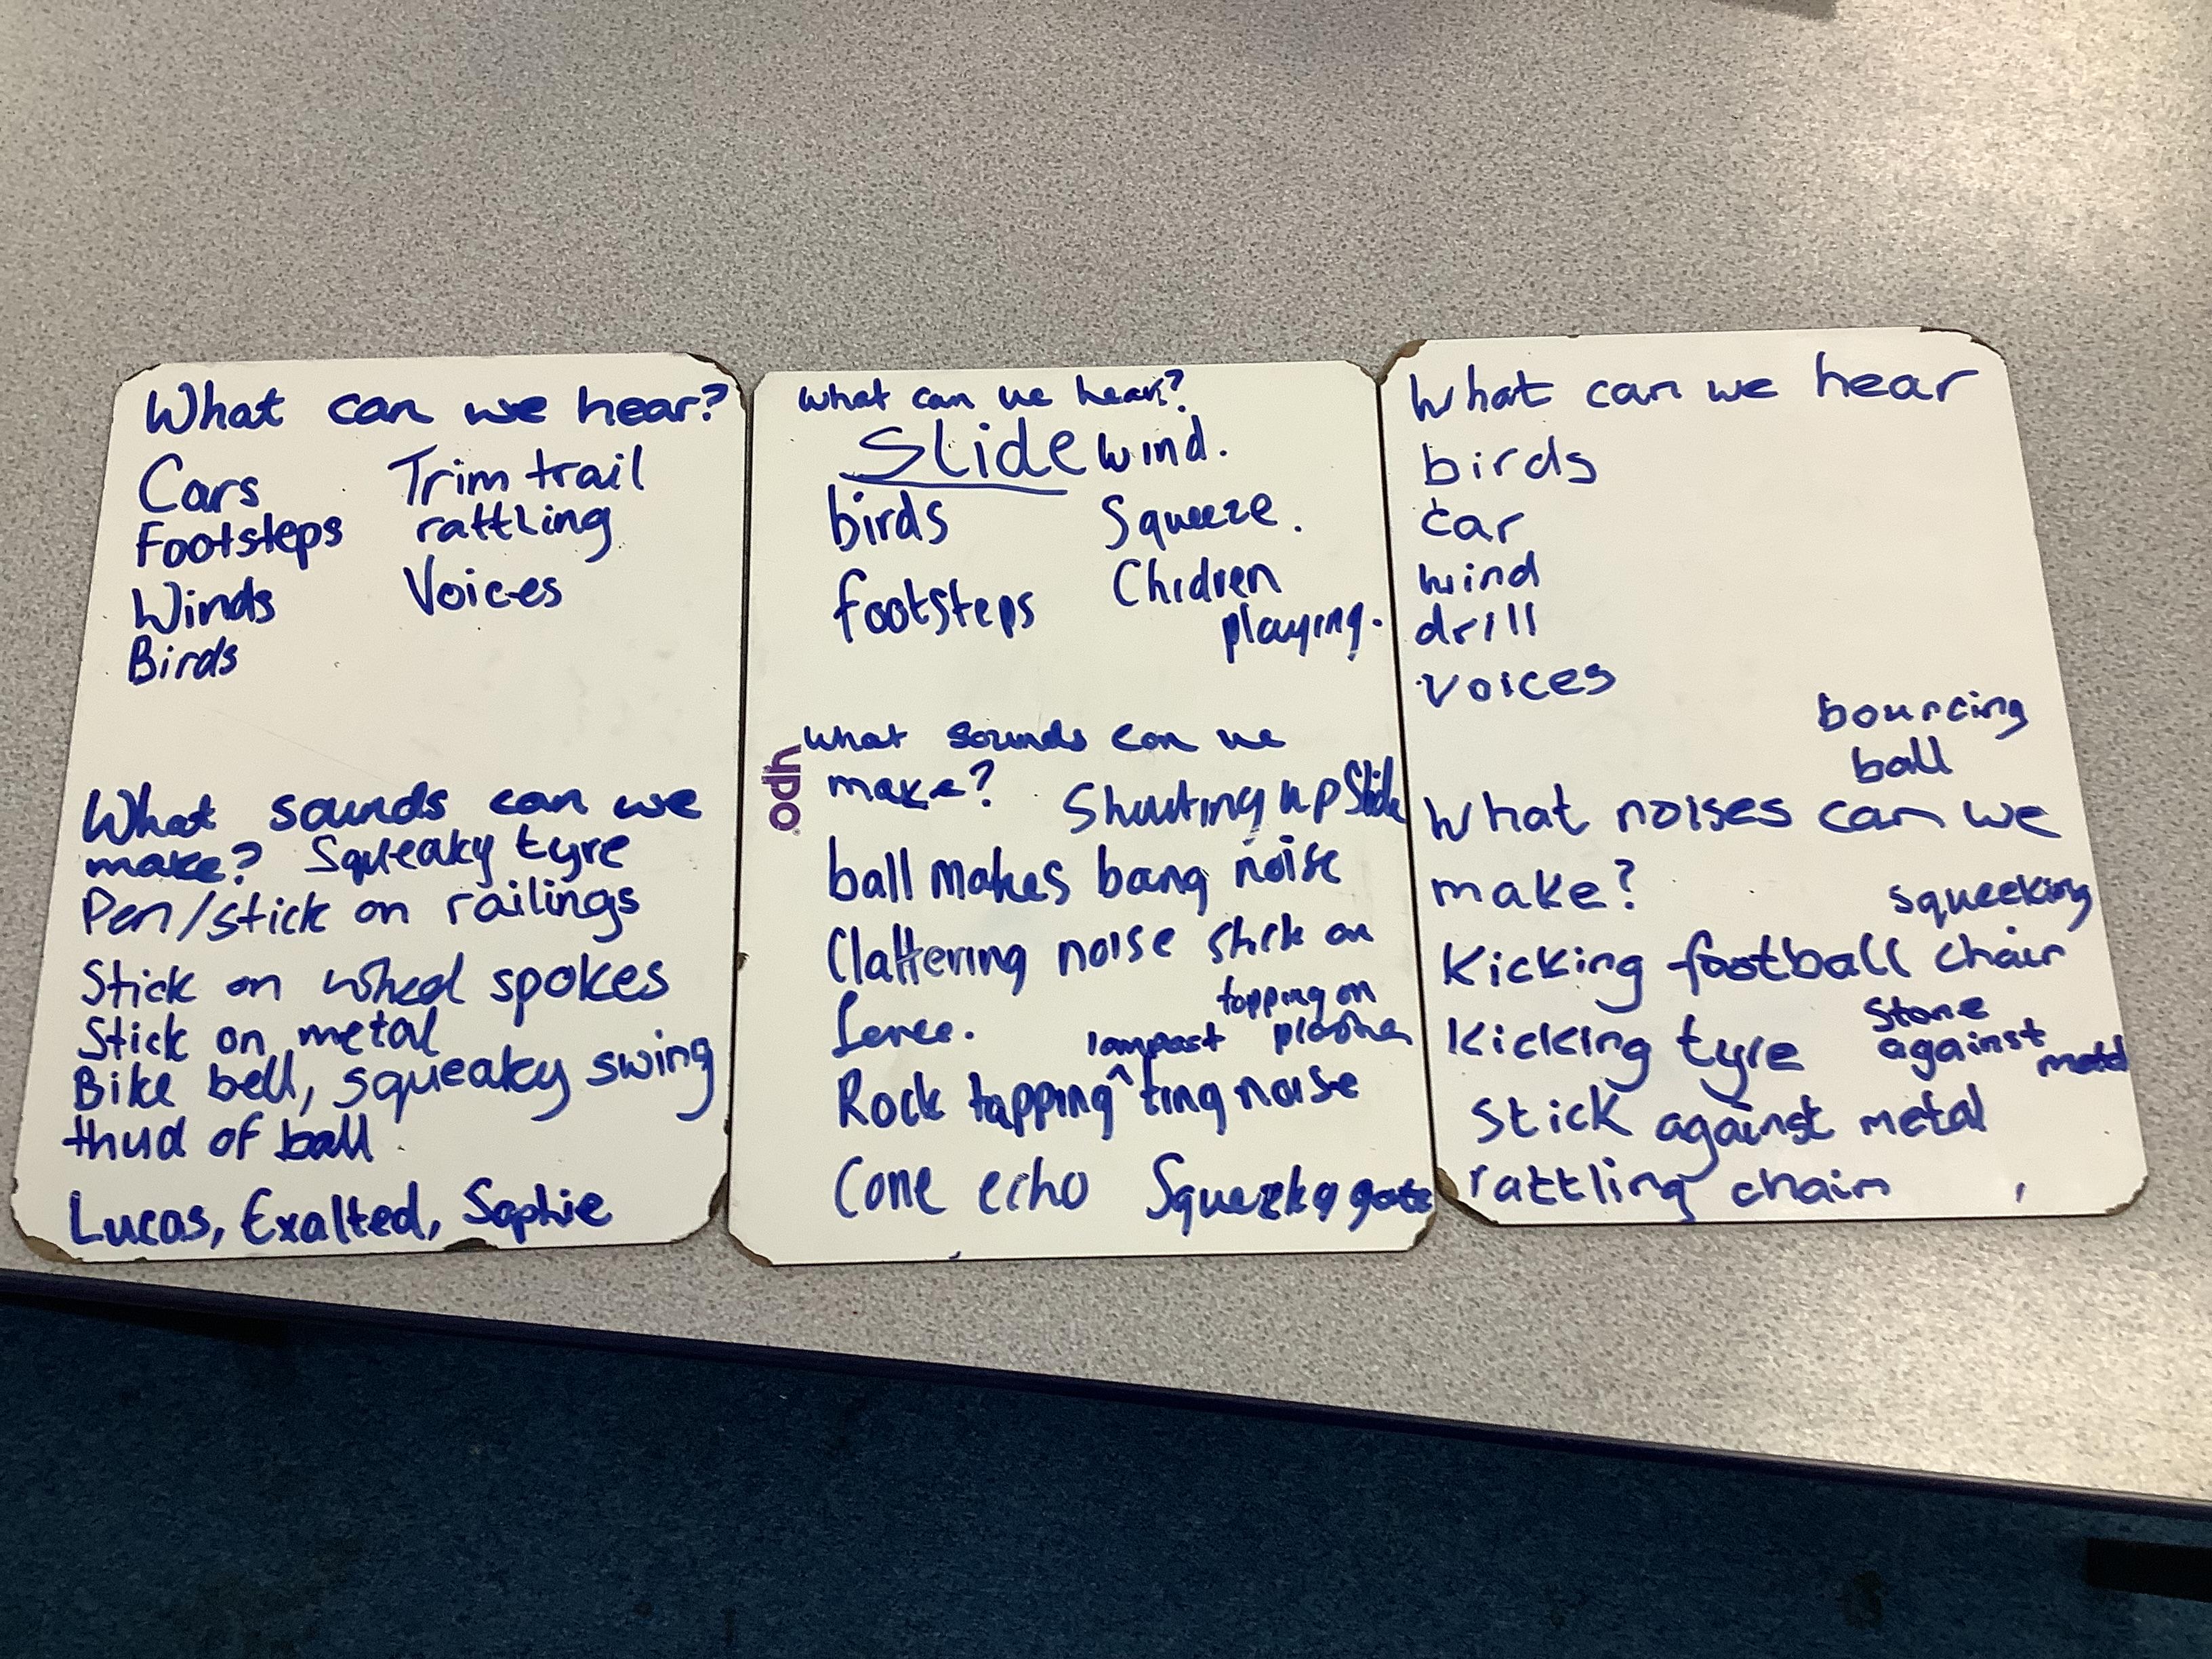 What can we hear?
Cars Trim trail
Footsteps rattling
Winds Voices
Birds
What sounds can we
make? Squeaky tyre
Pen/stick on railings
Stick on wheel spokes
Stick on metal
Bike bell, squeaky swing
thud of ball
Lucas, Exalted, Sophie
What can we hear?
Slide wind.
birds Squeeze.
footsteps Chidren
playing.
What sounds can we
make? Shouting up Slide
ypo
ball makes bang noise
Clattering noise stick on
fence. tapping on
lampost
Rock tapping ^ ting noise
Cone echo gate
What can we hear
birds
car
wind
drill
voices
bouncing
ball
What noises can we
make? squeeking
Kicking football chair
Kicking tyre Stone
against
metal
Stick against metal
rattling chain